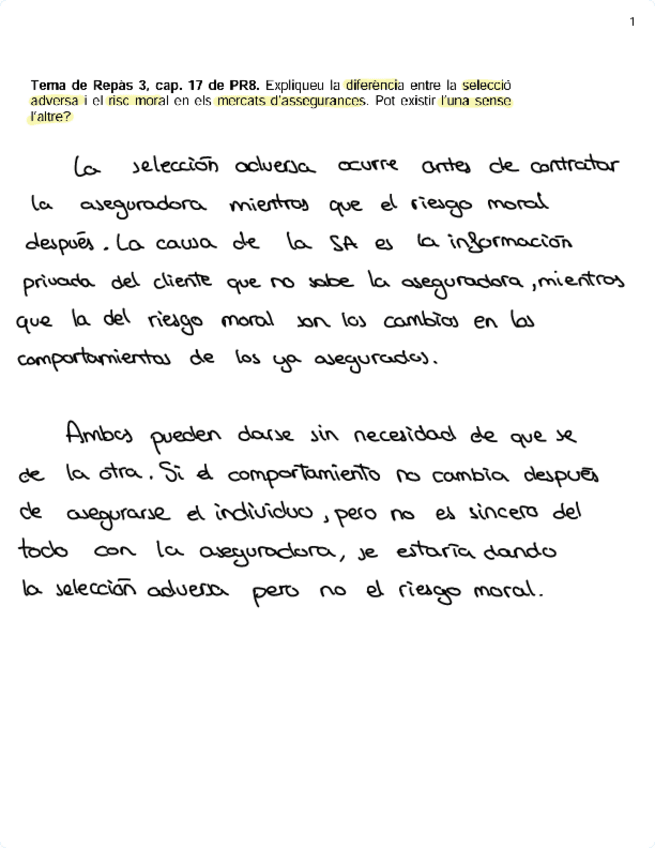 1
Tema de Repàs 3, cap. 17 de PR8. Expliqueu la diferència entre la selecció
adversa i el risc moral en els mercats d'assegurances. Pot existir l'una sense
l'altre?
La selección adversa ocurre antes de contratar
la aseguradora mientras que el riesgo moral
después. La causa de la SA es la información
privada del cliente que no sabe la aseguradora, mientras
que la del riesgo moral son los cambios en los
comportamientos de los ya asegurados.
Ambas pueden darse sin necesidad de que se
de la otra. Si el comportamiento no cambia después
de asegurarse el individuo, pero no es sincero del
todo con la aseguradora, se estaría dando
la selección adversa pero no el riesgo moral.